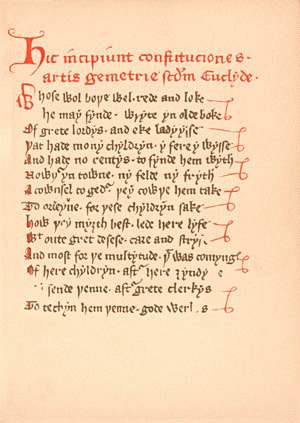 Hic incipiunt constituciones
artis gemetrie scdm Euclyde.
Whose wol boþe wel rede and loke
He may fynde wryte yn olde boke
Of grete lordys and eke ladyysse
þat had mony chyldryn y fere y wysse
And had no rentys to fynde hem wyth
Nowþr yn towne ny felde ny fryth
A cownsel to gedr þey cowþe hem take
To ordeyne for þese chyldryn sake
How þey myȝth best lede here lyfe
Wt oute gret desese care and stryf
And most for þe multytude þt was comyng
Of here chyldryn aftr here ȝyndy
sende þenne aftr grete clerkys
To techyn hem þenne gode werkys